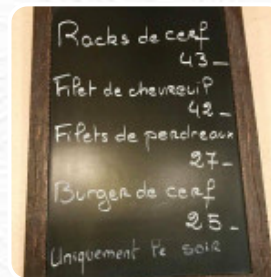 Racks de cerf
43_
Filet de chevreuil
42_
Filets de perdreaux
27_
Burger de cerf
25_
Uniquement le soir